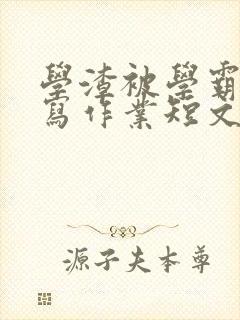 學渣被學霸
寫作業短文
源子夫本尊